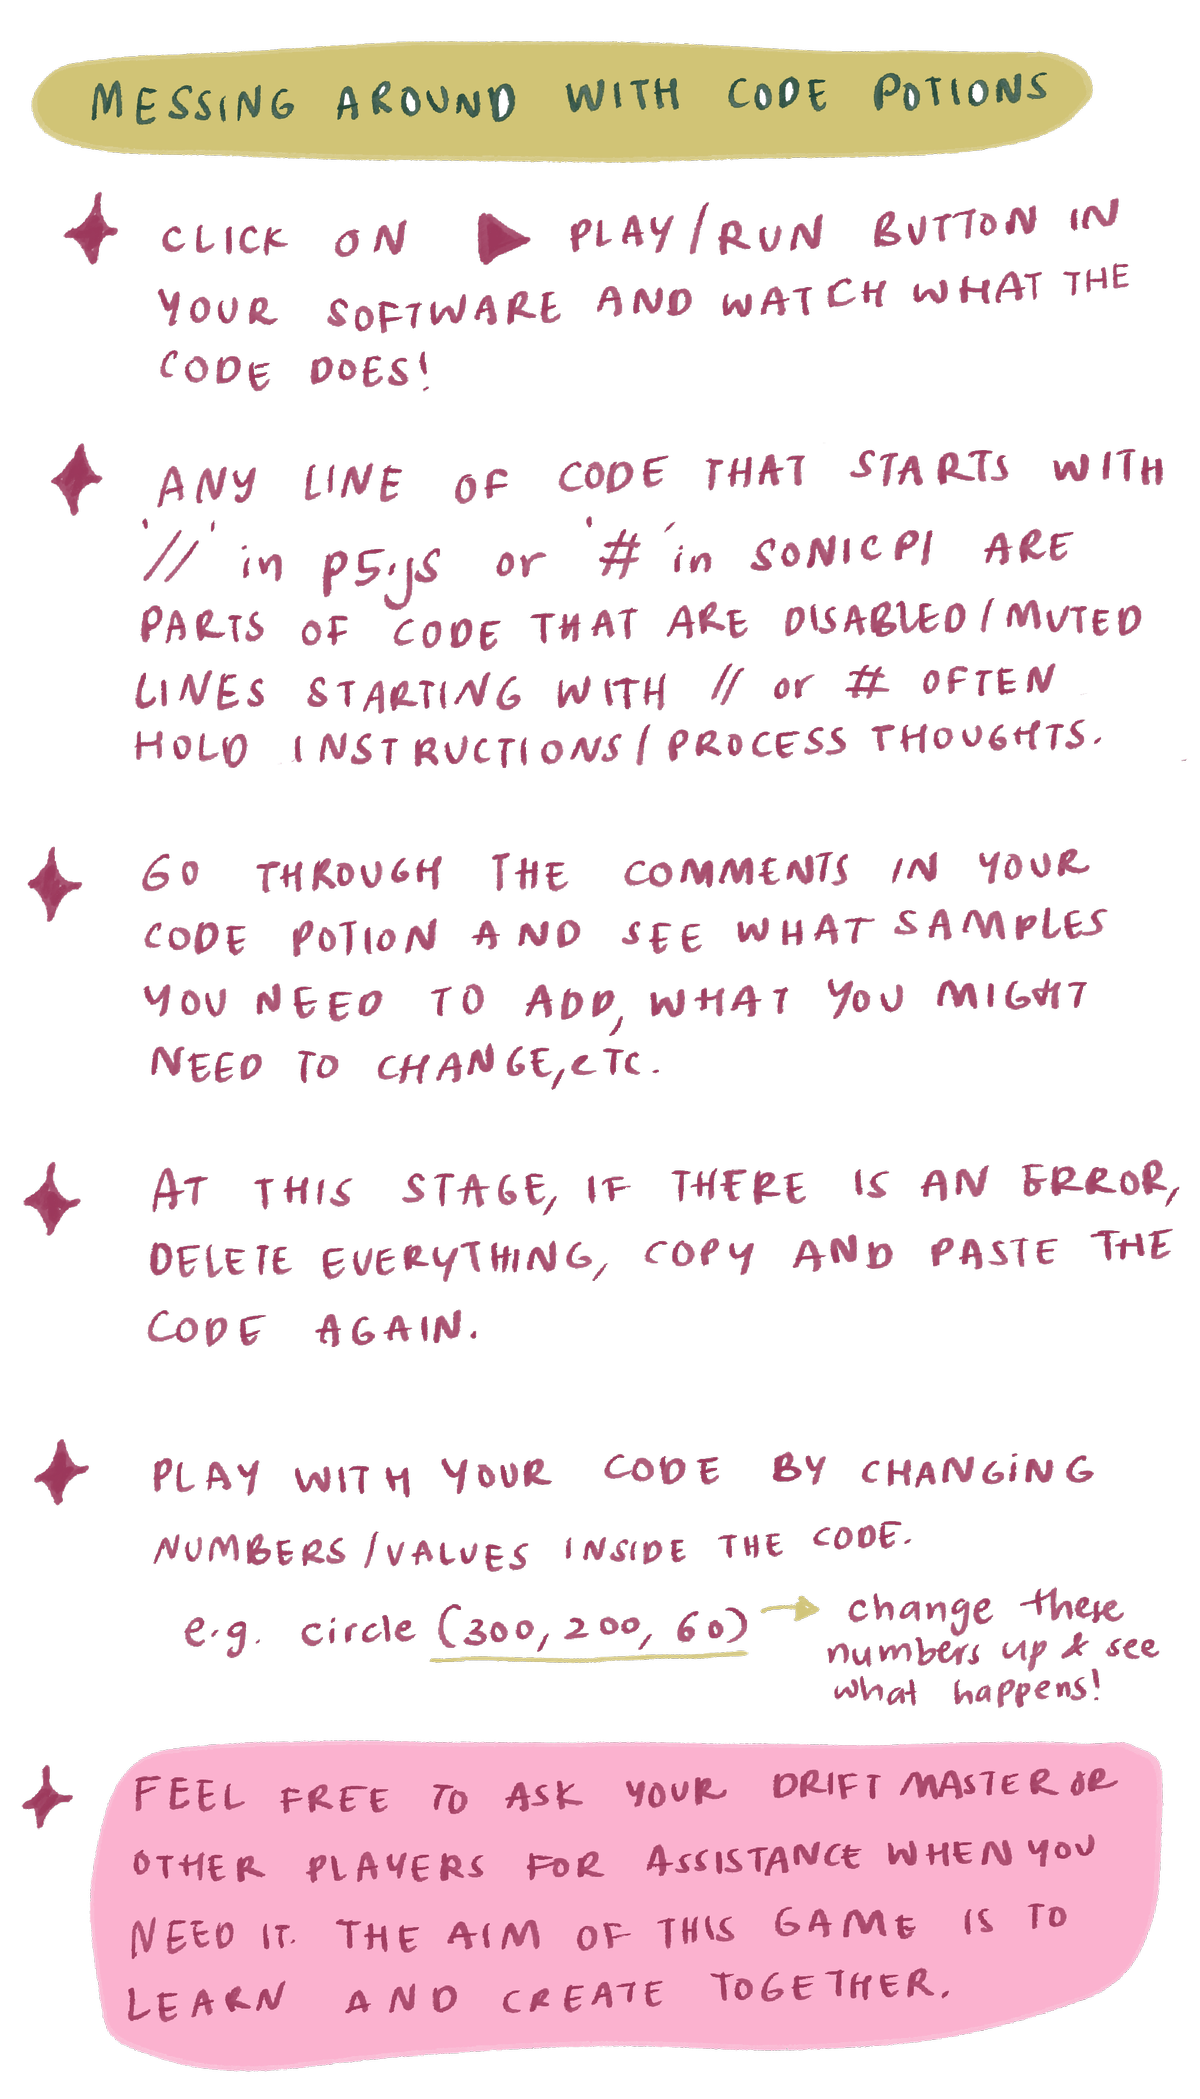 MESSING AROUND WITH CODE POTIONS
CLICK ON ▶ PLAY/RUN BUTTON IN
YOUR SOFTWARE AND WATCH WHAT THE
CODE DOES!
ANY LINE OF CODE THAT STARTS WITH
'//' in p5.js or '#' in SONICPI ARE
PARTS OF CODE THAT ARE DISABLED/MUTED
LINES STARTING WITH // or # OFTEN
HOLD INSTRUCTIONS/PROCESS THOUGHTS.
GO THROUGH THE COMMENTS IN YOUR
CODE POTION AND SEE WHAT SAMPLES
YOU NEED TO ADD, WHAT YOU MIGHT
NEED TO CHANGE, ETC.
AT THIS STAGE, IF THERE IS AN ERROR,
DELETE EVERYTHING, COPY AND PASTE THE
CODE AGAIN.
PLAY WITH YOUR CODE BY CHANGING
NUMBERS/VALUES INSIDE THE CODE.
e.g. circle (300, 200, 60) → change these
numbers up & see
what happens!
FEEL FREE TO ASK YOUR DRIFT MASTER OR
OTHER PLAYERS FOR ASSISTANCE WHEN YOU
NEED IT. THE AIM OF THIS GAME IS TO
LEARN AND CREATE TOGETHER.